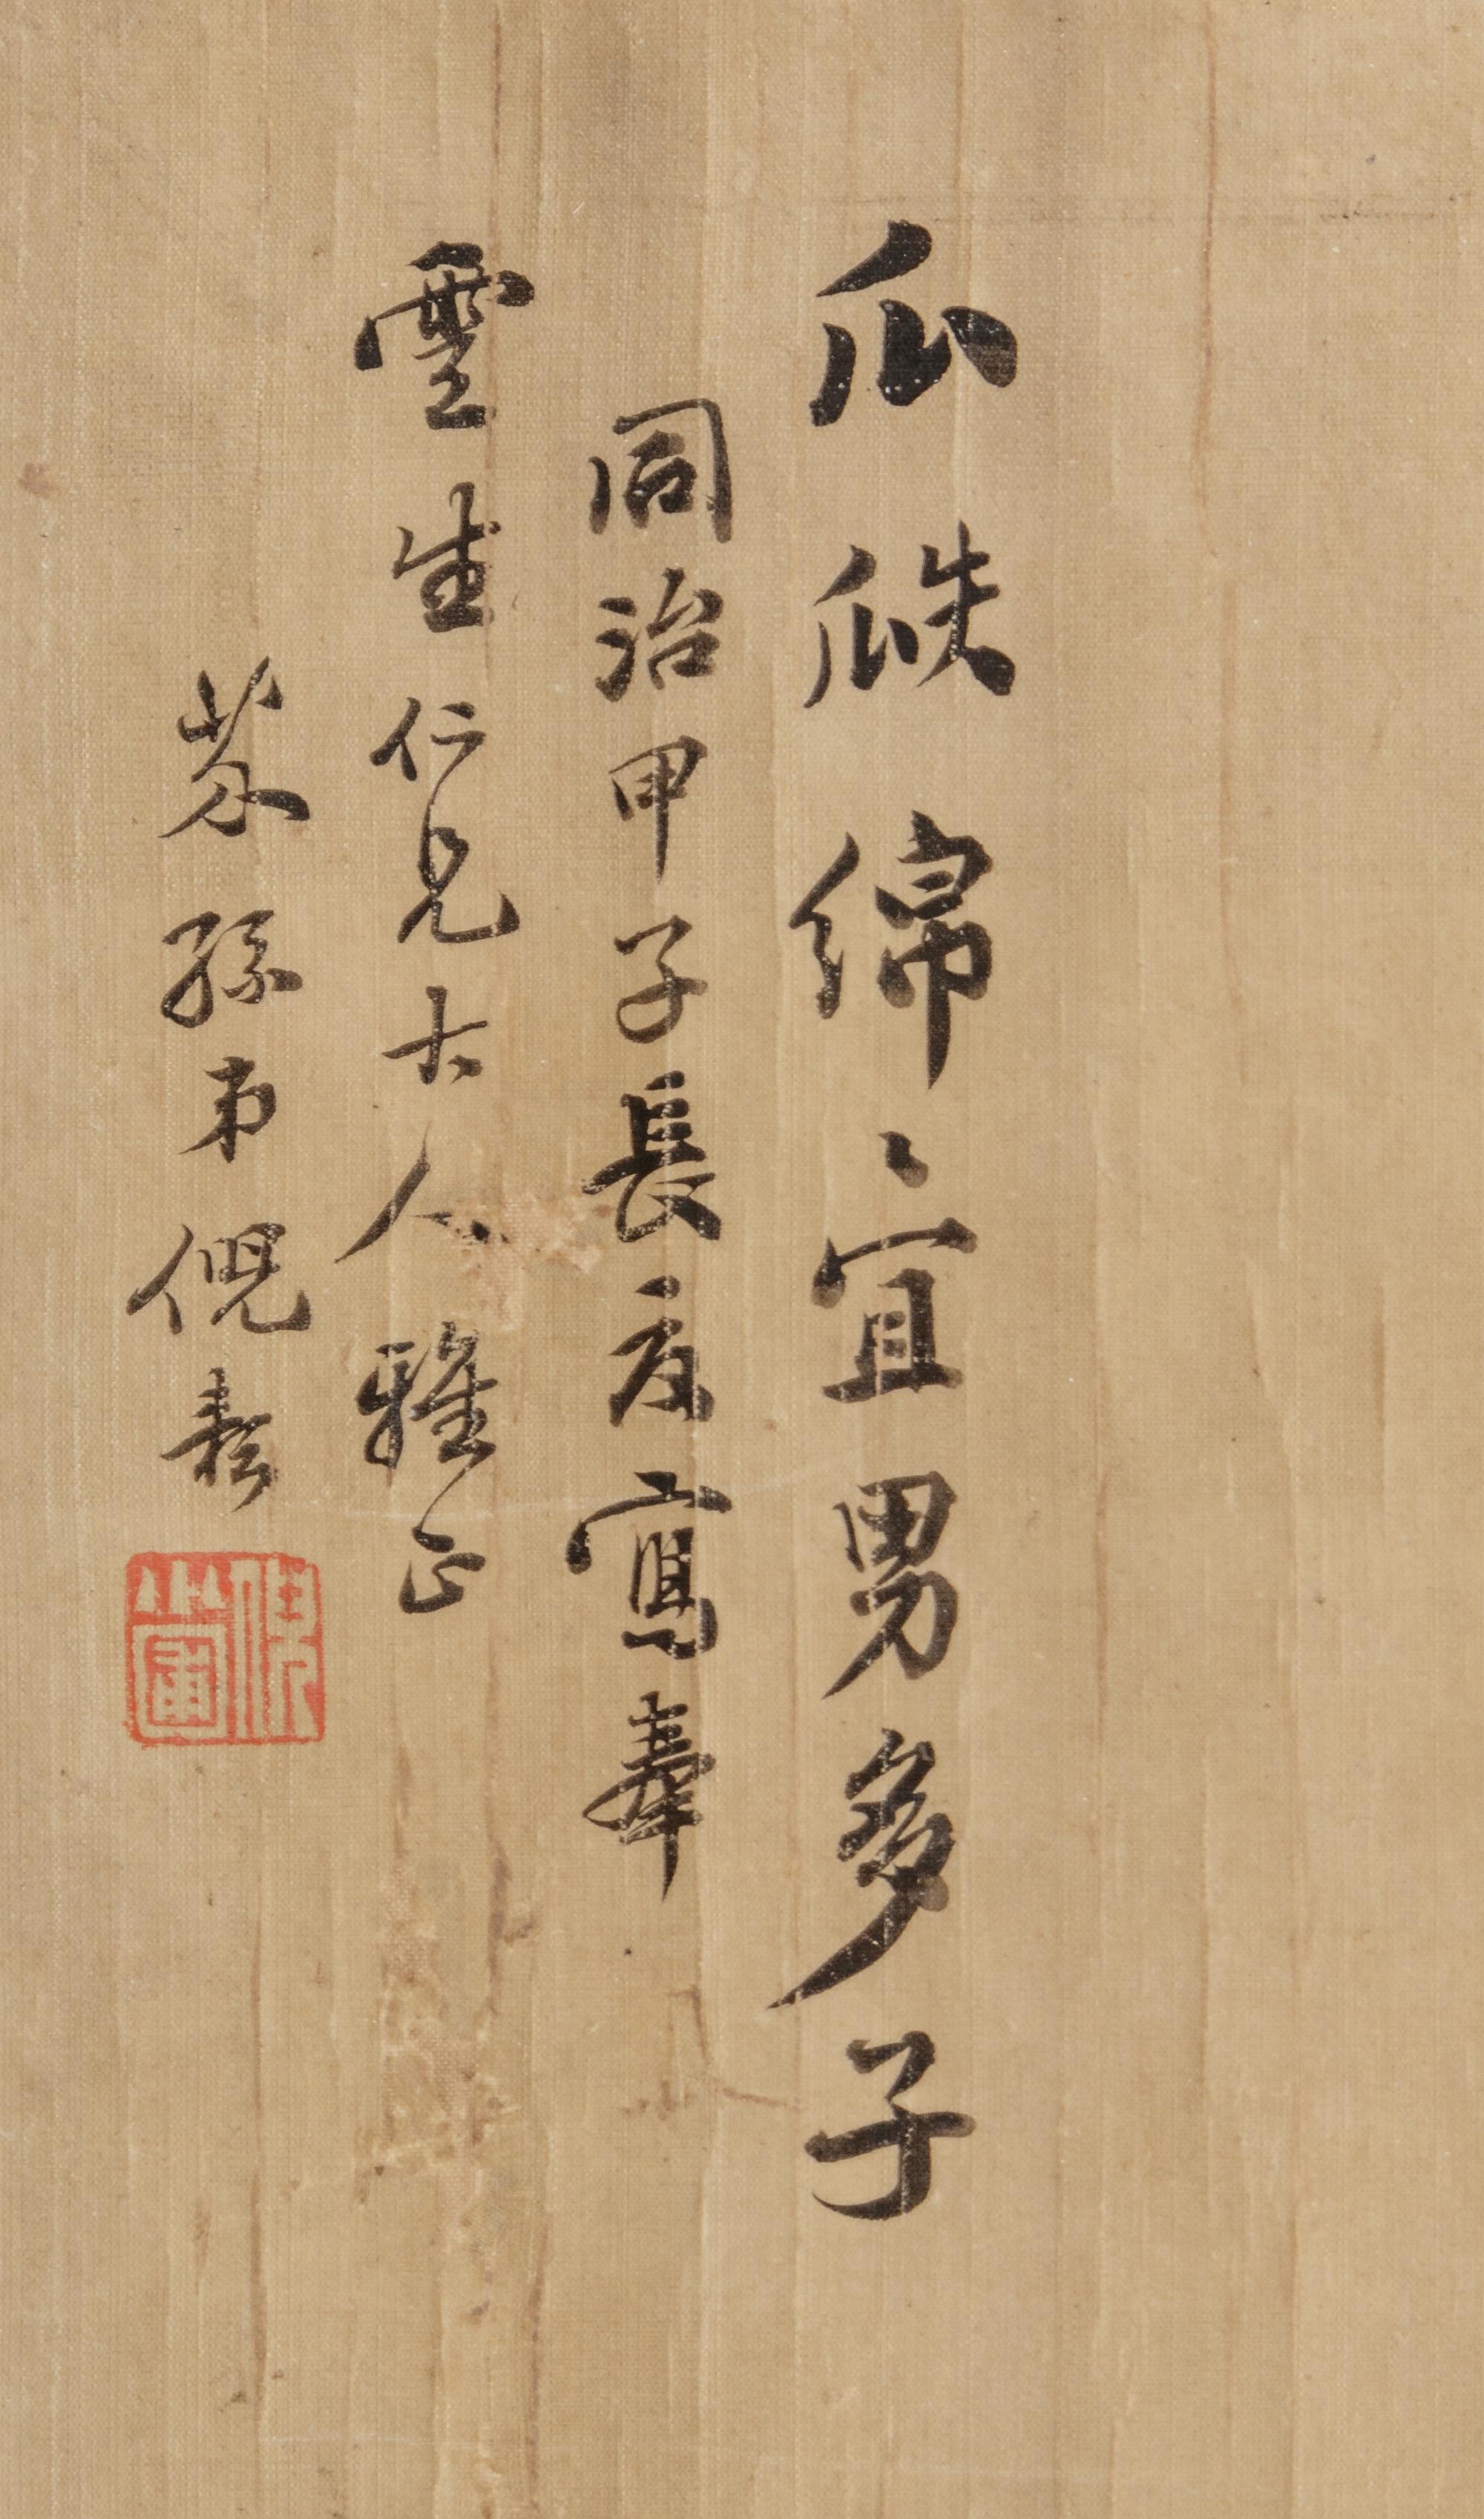 瓜瓞綿〻宜男多子
同治甲子長夏寫奉
雲生仁兄大人雅正
芬孫弟倪耘